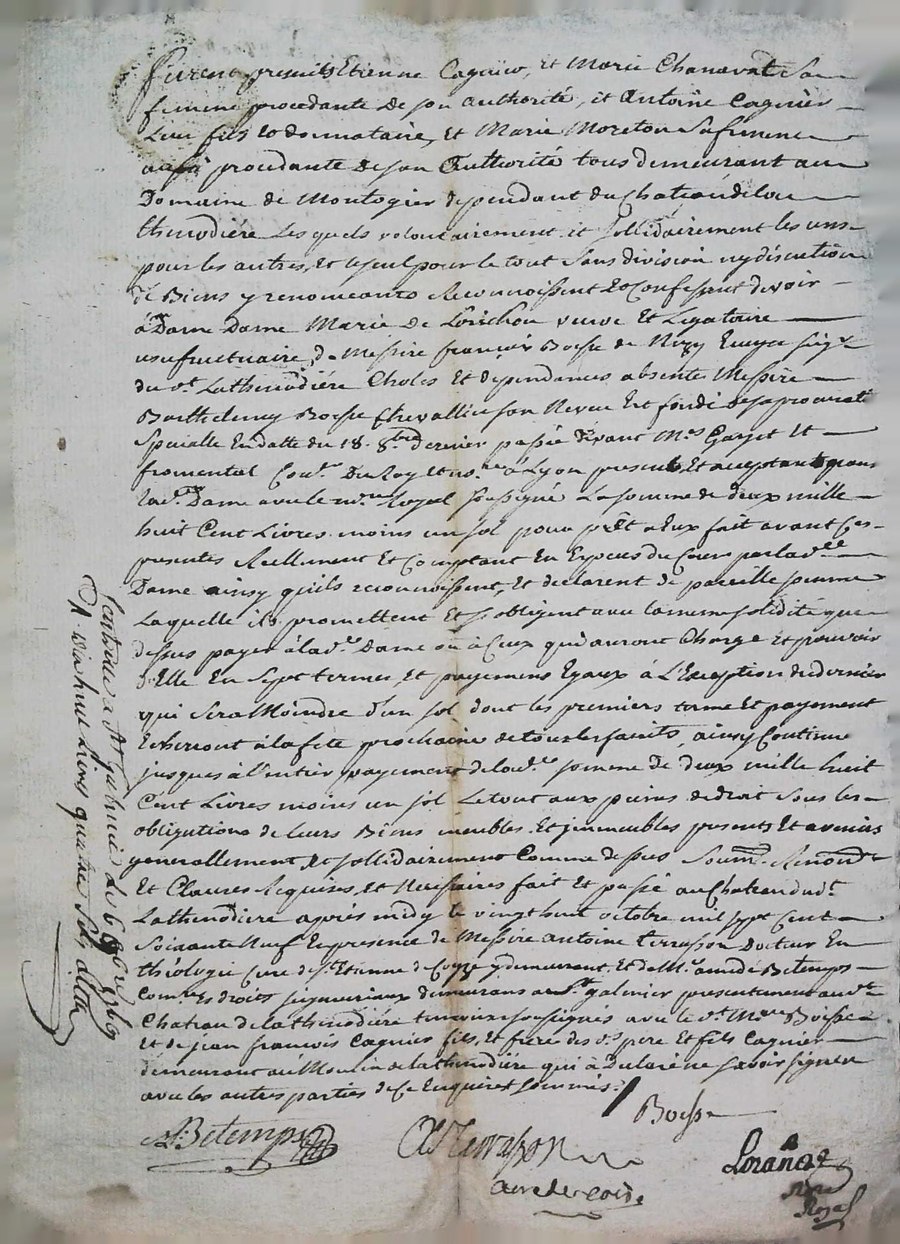 furent presents Etienne Cagnieu, et Marie Chanavat Sa
femme procedante de son authorité, et Antoine Cagnier
Leur fils et donnataire, et Marie Moreton Sa femme
aussi procedante de son Authorité tous demeurant au
Domaine de Montogier dependant du Chateau de
thenodiére Les quels volontairement et sollidairement les uns
pour les autres, et le seul pour le tout sans division ny discution
de Biens y renonceants Reconnoissent et Confessent devoir
à Dame Dame Marie de veuve Et Legatoire
usufructuaire de Messire françois Boesse de Ecuyer seigr
du dt. Lathenodiére Choles Et dependances absente Messire
Barthelemy Boesse Chevallier son Neveu Et fondé de sa procuration
Specialle En datte du 18. 8bre. dernier passée devant Mes Et
fromental Coners. Du Roy et nores à Lyon present Et acceptant pour
lad. Dame avec le nore Royal soussigné La somme de deux mille
huit Cent Livres moins un sol pour prêt a Eux fait avant Ces
presentes Reellement Et Comptant En Especes du Cours par lade.
Dame ainsy qu'ils reconnoissent, Et declarent de pareille somme
Laquelle ils promettent Et s'obligent avec la meme solidité que
dessus payer à lade. Dame ou à Ceux qui auront Charge et pouvoir
d'Elle En Sept termes, et payemens Egaux à L'Exception du dernier
qui Sera Moindre d'un sol dont les premiers terme Et payement
Echerront à la fete prochaine de tous les saints, ainsy Continue
jusques à l'entier payement de lade. somme de deux mille huit
Cent Livres moins un sol Le tout aux peines de droit sous les
obligations de leurs Biens meubles Et immeubles presents Et avenirs
generallement Et sollidairement Comme dessus Soumn. Renonn.
Et Clauses Requises, et Necessaires fait Et passé au Chateau du dt.
Lathenodiere aprés midy le vingt huit octobre mil sept Cent
Soixante Neuf En presence de Messire Antoine terrasson Docteur En
théologie Curé de St. Etienne de y demeurant, Et de Mr. amedé Betemps
Comre. Es droits seigneuriaux demeurans a St. galmier presentement au dt.
Chateau de lathenodiére temoins soussignés avec le dt. Mre Boesse
Et de jean françois Cagnier fils, et frere des dts. pere Et fils Cagnier
demeurant au Moulin de lathenodiére qui à Declaré ne savoir signer
avec les autres parties de Ce Enquis et sommés.
Boesse
A. Betemps
A Terrasson
curé de
nore
Royal
Controllé a St. galmier le 6 9bre 1769
R. dix huit livres quatre sols